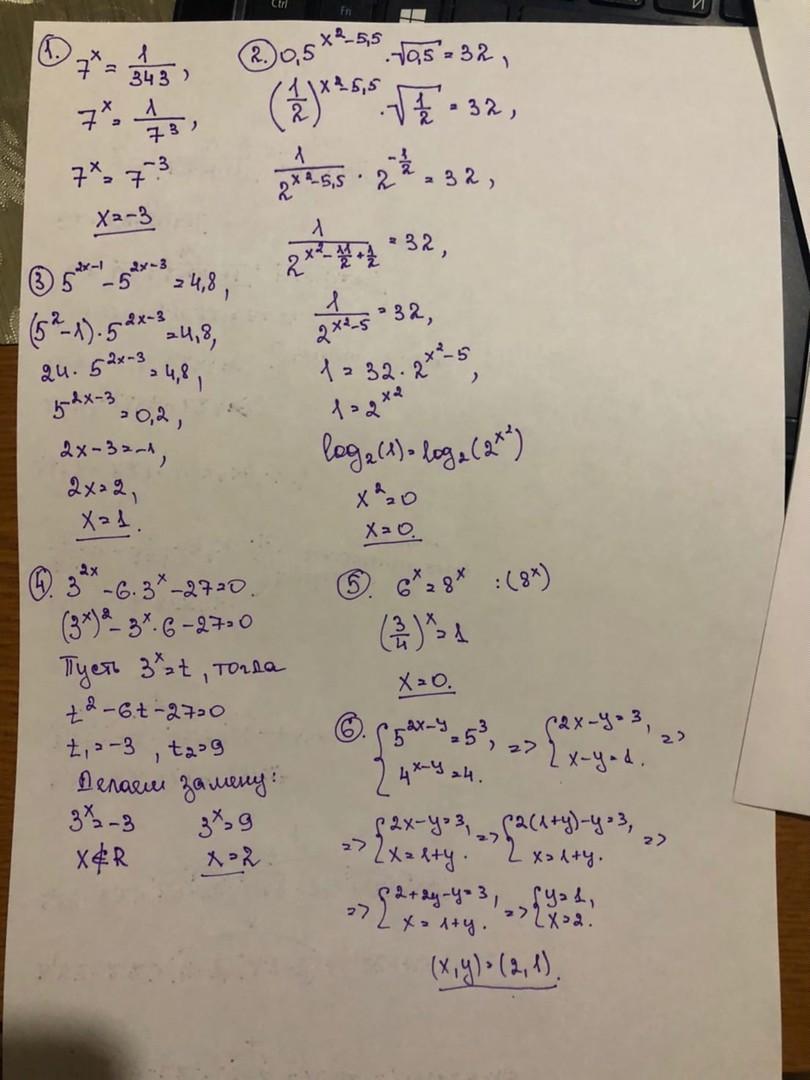 Ctrl Fn
1. 7^x = 1/343,
7^x = 1/7^3,
7^x = 7^-3
x=-3
2. 0,5^(x^2-5,5) · √0,5 = 32,
(1/2)^(x^2-5,5) · √(1/2) = 32,
1/2^(x^2-5,5) · 2^(-1/2) = 32,
1/2^(x^2-11/2+1/2) = 32,
1/2^(x^2-5) = 32,
1 = 32 · 2^(x^2-5),
1 = 2^(x^2)
log₂(1) = log₂(2^(x^2))
x^2 = 0
x = 0.
3 5^(2x-1) - 5^(2x-3) = 4,8,
(5^2-1) · 5^(2x-3) = 4,8,
24 · 5^(2x-3) = 4,8,
5^(2x-3) = 0,2,
2x-3=-1,
2x=2,
x=1.
4. 3^(2x) - 6 · 3^x - 27=0.
(3^x)^2 - 3^x · 6 - 27=0
Пусть 3^x = t, тогда
t^2 - 6t - 27=0
t₁=-3, t₂=9
Делаем замену:
3^x = -3 3^x = 9
x∉R x=2
5. 6^x = 8^x :(8^x)
(3/4)^x = 1
x=0.
6. { 5^(2x-y) = 5^3, 4^(x-y) = 4. => { 2x-y=3, x-y=1. =>
=> { 2x-y=3, x=1+y. => { 2(1+y)-y=3, x=1+y. =>
=> { 2+2y-y=3, x=1+y. => { y=1, x=2.
(x,y)=(2,1).